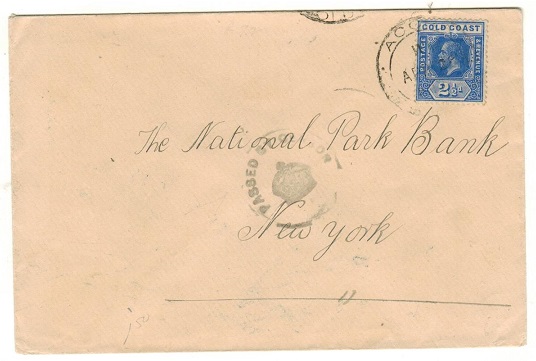 GOLD COAST
POSTAGE
& REVENUE
2½d
The National Park Bank
PASSED
New York